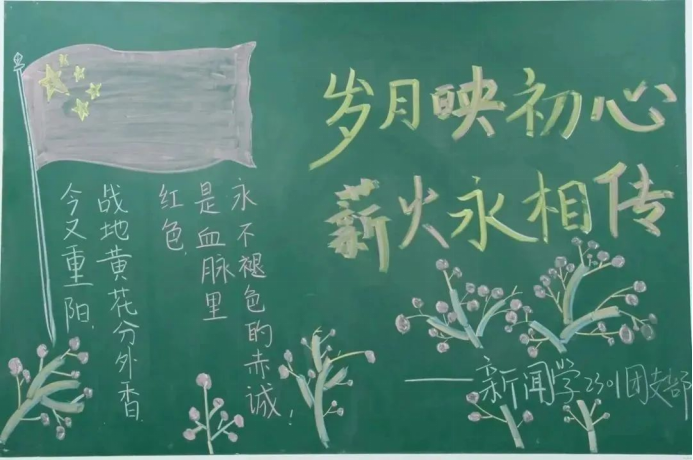 岁月映初心
薪火永相传
永不褪色的赤诚！
是血脉里
红色.
战地黄花分外香.
今又重阳.
——新闻学2301团支部